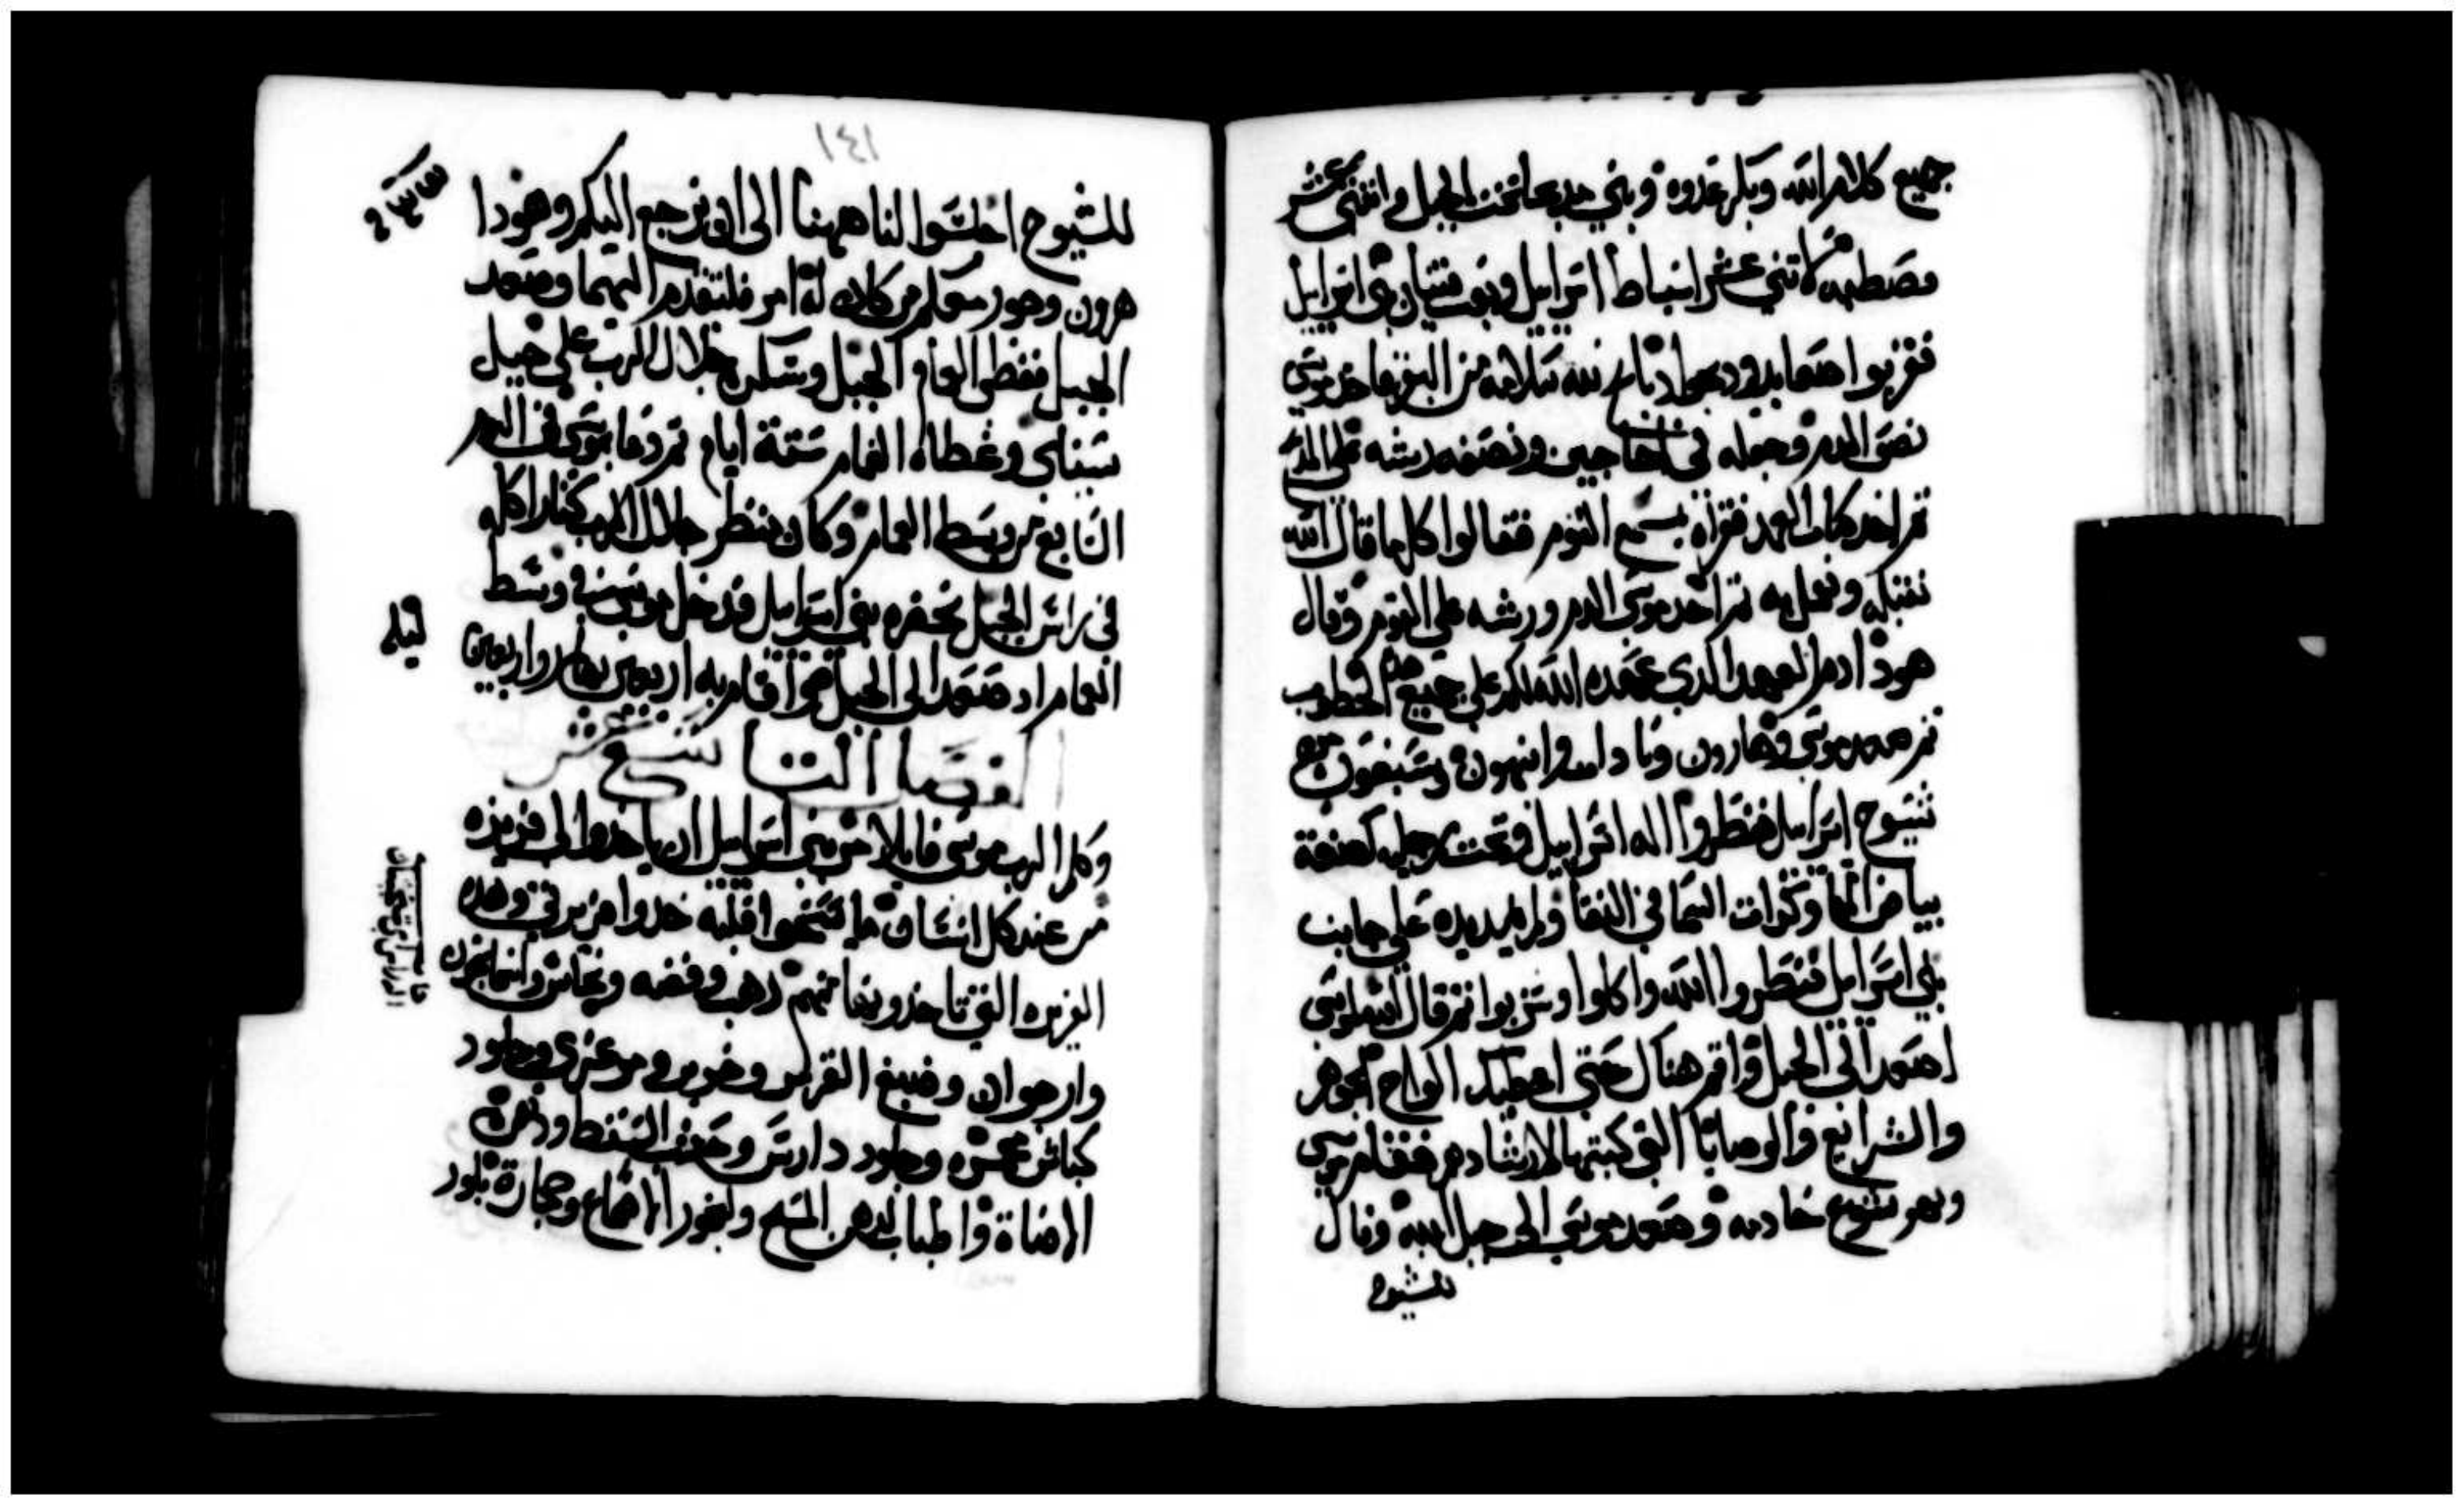 جميع كلام الله وبكر غدوه وبني مدبحا تحت الجبل واثني عشر
مصطبه لاثني عشر اسباط اسراييل وبعت فتيان بني اسراييل
فقربوا صعايد ودبحوا دبايح لله سلامه من البقر فاخد موسى
نصف الدم وجعله في اجاجين ونصفه رشه على المدبح
ثم اخد كتاب العهد فقراه بسمع القوم فقالوا كل ما قال الله
نقبله ونعمل به ثم اخد موسى الدم ورشه على القوم وقال
هودا دم العهد الدي عهده الله لكم على جميع هده الخطوب
ثم صعد موسى وهارون وناداب وابيهود وسبعون من
شيوخ اسراييل فنظروا اله اسراييل وتحت رجليه كصنفة
بياض المها وكدات السما في النقا ولم يمد يده على جانب
بني اسراييل فنظروا الله واكلوا وشربوا ثم قال الله لموسى
اصعد الي الجبل واقم هناك حتى اعطيك الواح الجوهر
والشرايع والوصايا التي كتبتها لارشادهم فقام موسى
ويشوع خادمه وصعد موسى الى جبل الله وقال
للشيوخ
١٤١
للشيوخ اجلسوا لنا ههنا الى ان نرجع اليكم وهودا
هرون وحور معكم من كان له امر فليتقدم اليهما وصعد
الجبل فغطى الغمام الجبل وسكن جلال الرب على جبل
سيناي وغطاه الغمام ستة ايام ثم دعا موسى في اليوم
السابع من وسط الغمام وكان منظر جلال الرب كنار اكله
في راس الجبل بحضرة بني اسراييل فدخل موسى في وسط
الغمام اد صعد الى الجبل واقام به اربعين نهار واربعين
ليله
الفصل التاسع عشر
وكلم الرب موسى قايلا مر بني اسراييل ان ياخدوا لي فريزه
من عند كل انسان ما يسخوا قلبه خدوا فريزتي وهده
الفريزه التي تاخدونها منهم دهب وفضه ونحاس واسمانجون
وارجوان وصبغ القرمز وحرير ومرعزي وجلود
كباش محمره وجلود دارش وخشب السنط ودهن
الاضاة واطياب لدهن المسح ولبخور الاصماغ وحجارة بلور